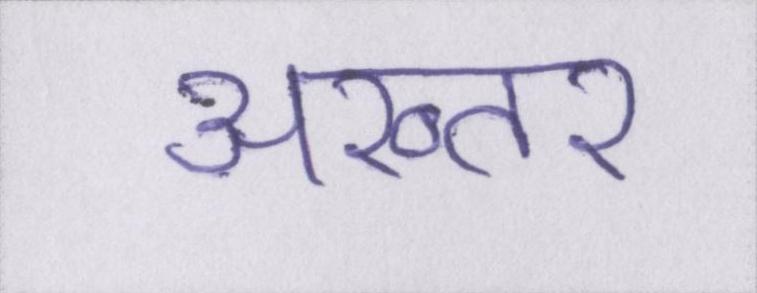 अख्तर